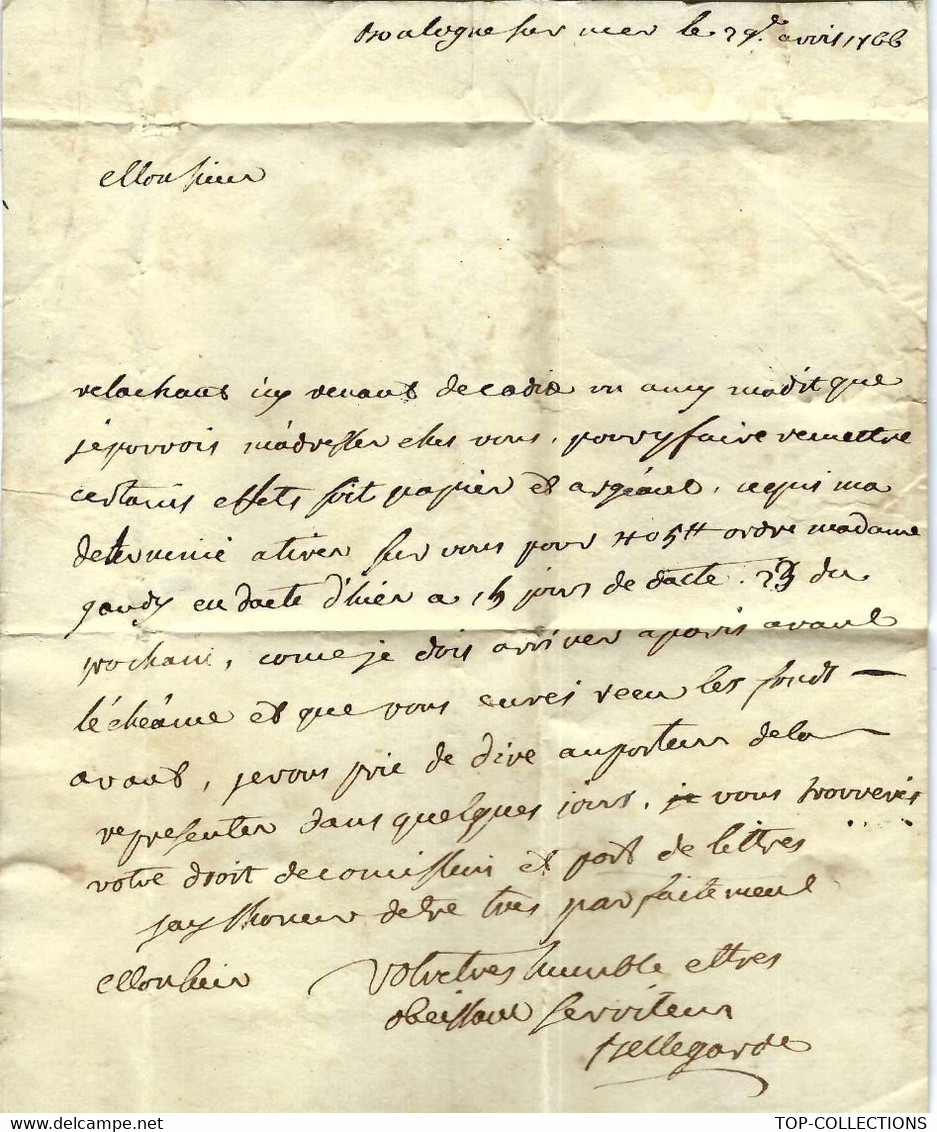 Boulogne sur mer le 29e. avril 1766
Monsieur
relachant icy venant de cadix un amy ma dit que
je porrois m'adresser ches vous, pour y faire remettre
certains effets soit papier et argeant, ce qui ma
determiné a tirer sur vous pour 405# ordre madame
en dacte d'hier a 15 jours de dacte. du
prochain, come je dois arriver a paris avant
l'échéance et que vous aurés receu les fondt
avant, je vous prie de dire au porteur de la
representer dans quelques jours, je vous trouverés
votre droit de comission et port de lettres
jay lhoneur detre tres parfaitement
Monsieur Votre tres humble et tres
obeissant serviteur
Bellegarde
TOP-COLLECTIONS